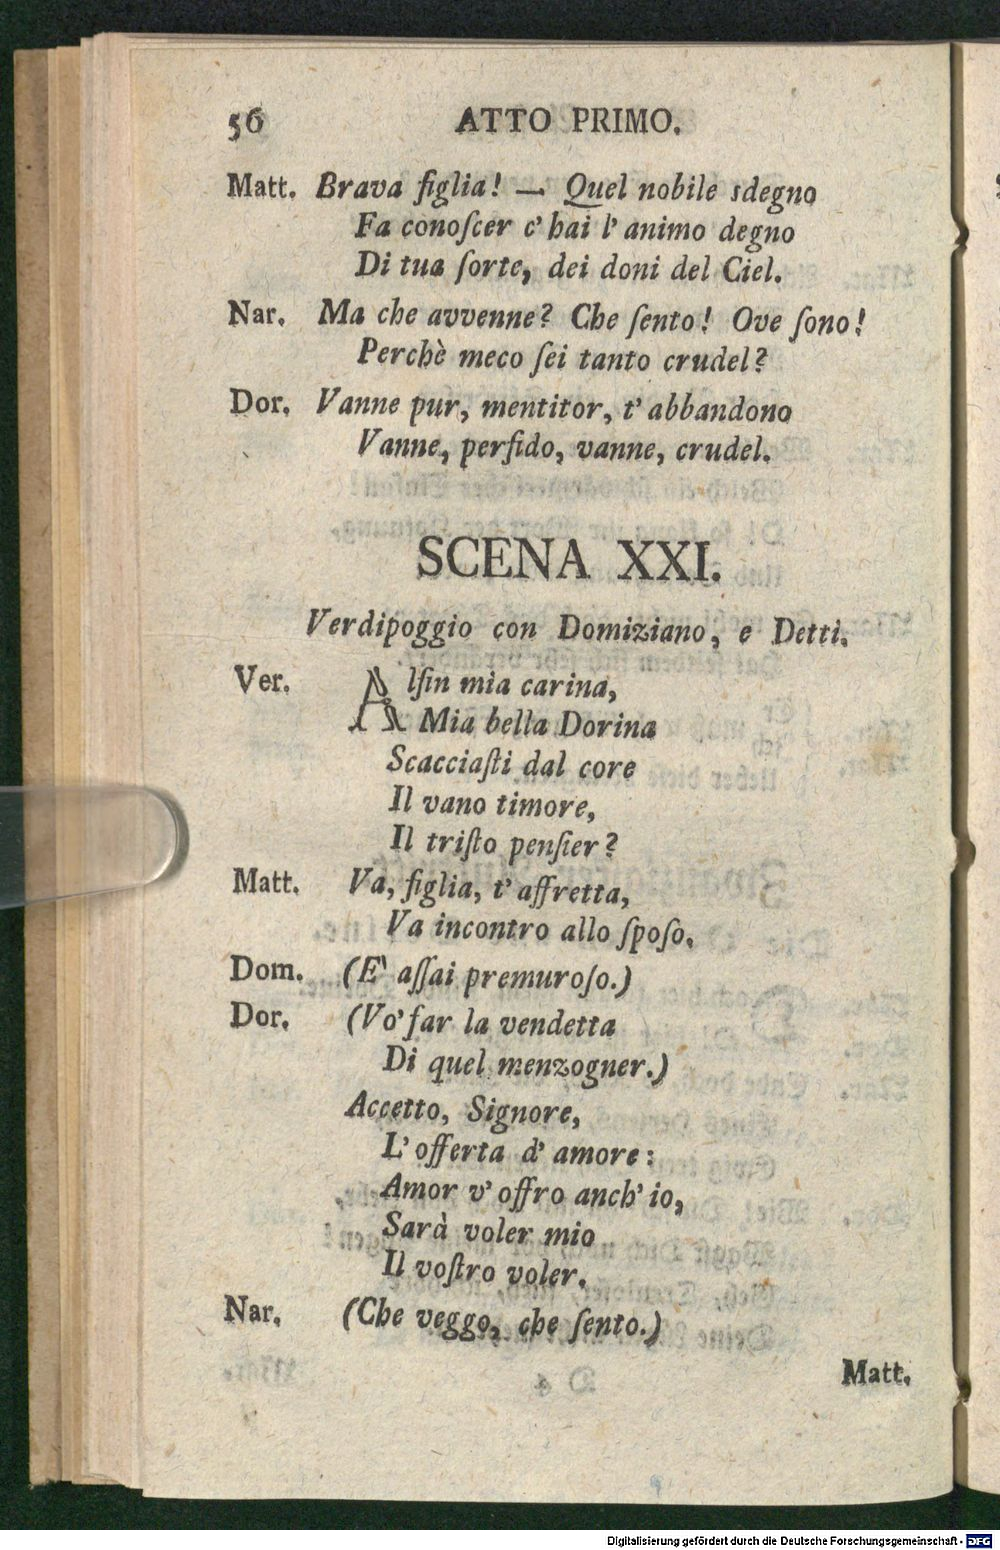 56 ATTO PRIMO.
Matt. Brava figlia! — Quel nobile sdegno
Fa conoſcer c' hai l' animo degno
Di tua ſorte, dei doni del Ciel.
Nar. Ma che avvenne? Che ſento! Ove ſono!
Perchè meco ſei tanto crudel?
Dor. Vanne pur, mentitor, t' abbandono
Vanne, perfido, vanne, crudel.
SCENA XXI.
Verdipoggio con Domiziano, e Detti.
Ver. Alſin mia carina,
Mia bella Dorina
Scacciaſti dal core
Il vano timore,
Il triſto penſier?
Matt. Va, figlia, t' affretta,
Va incontro allo ſpoſo.
Dom. (E' aſſai premuroſo.)
Dor. (Vo' far la vendetta
Di quel menzogner.)
Accetto, Signore,
L' offerta d' amore:
Amor v' offro anch' io,
Sarà voler mio
Il voſtro voler.
Nar. (Che veggo, che ſento.)
Matt.
Digitalisierung gefördert durch die Deutsche Forschungsgemeinschaft - DFG